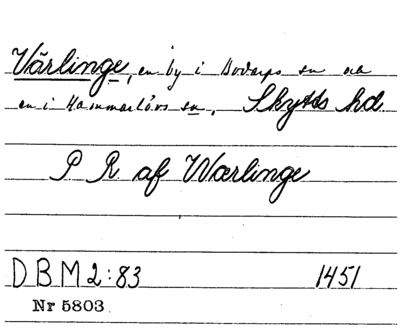 Värlinge, en by i Bodarps sn och
en i Hammarlövs sn. Skytts hd.
P R af Wærlinge
DBM 2:83 1451
Nr 5803